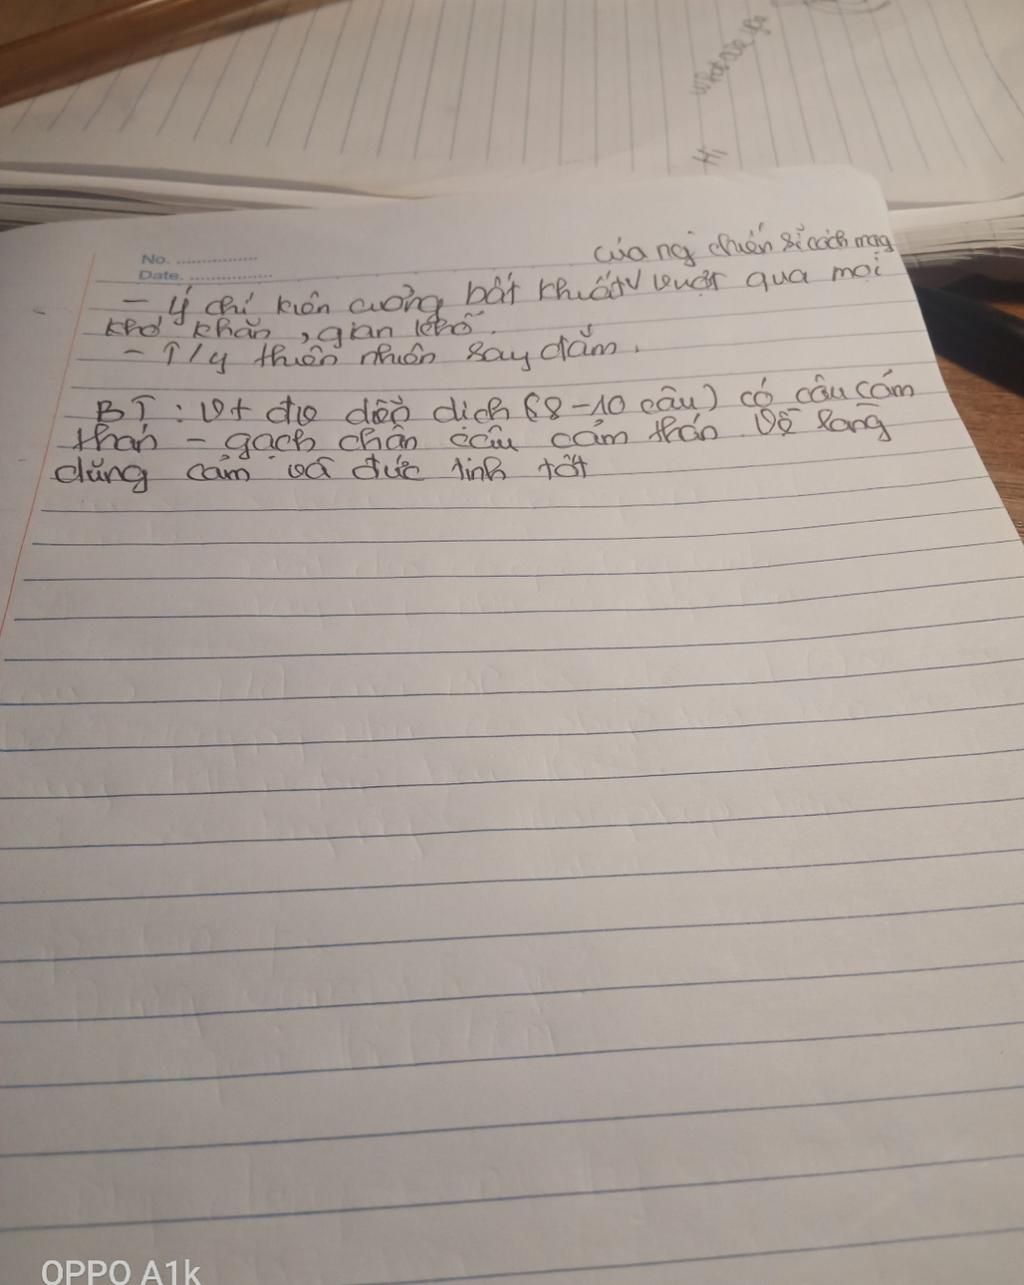 What are you
Hi
No. ..................
Date. ..................
của ng` chiến sĩ cách mạg
- Ý chí kiên cường bất khuất v vượt qua mọi
khó khăn, gian khổ.
- T/y thiên nhiên say đắm.
BT: Vt đv diễn dịch (8-10 câu) có câu cảm
thán - gạch chân câu cảm thán. Về lòng
dũng cảm và đức tính tốt
OPPO A1k